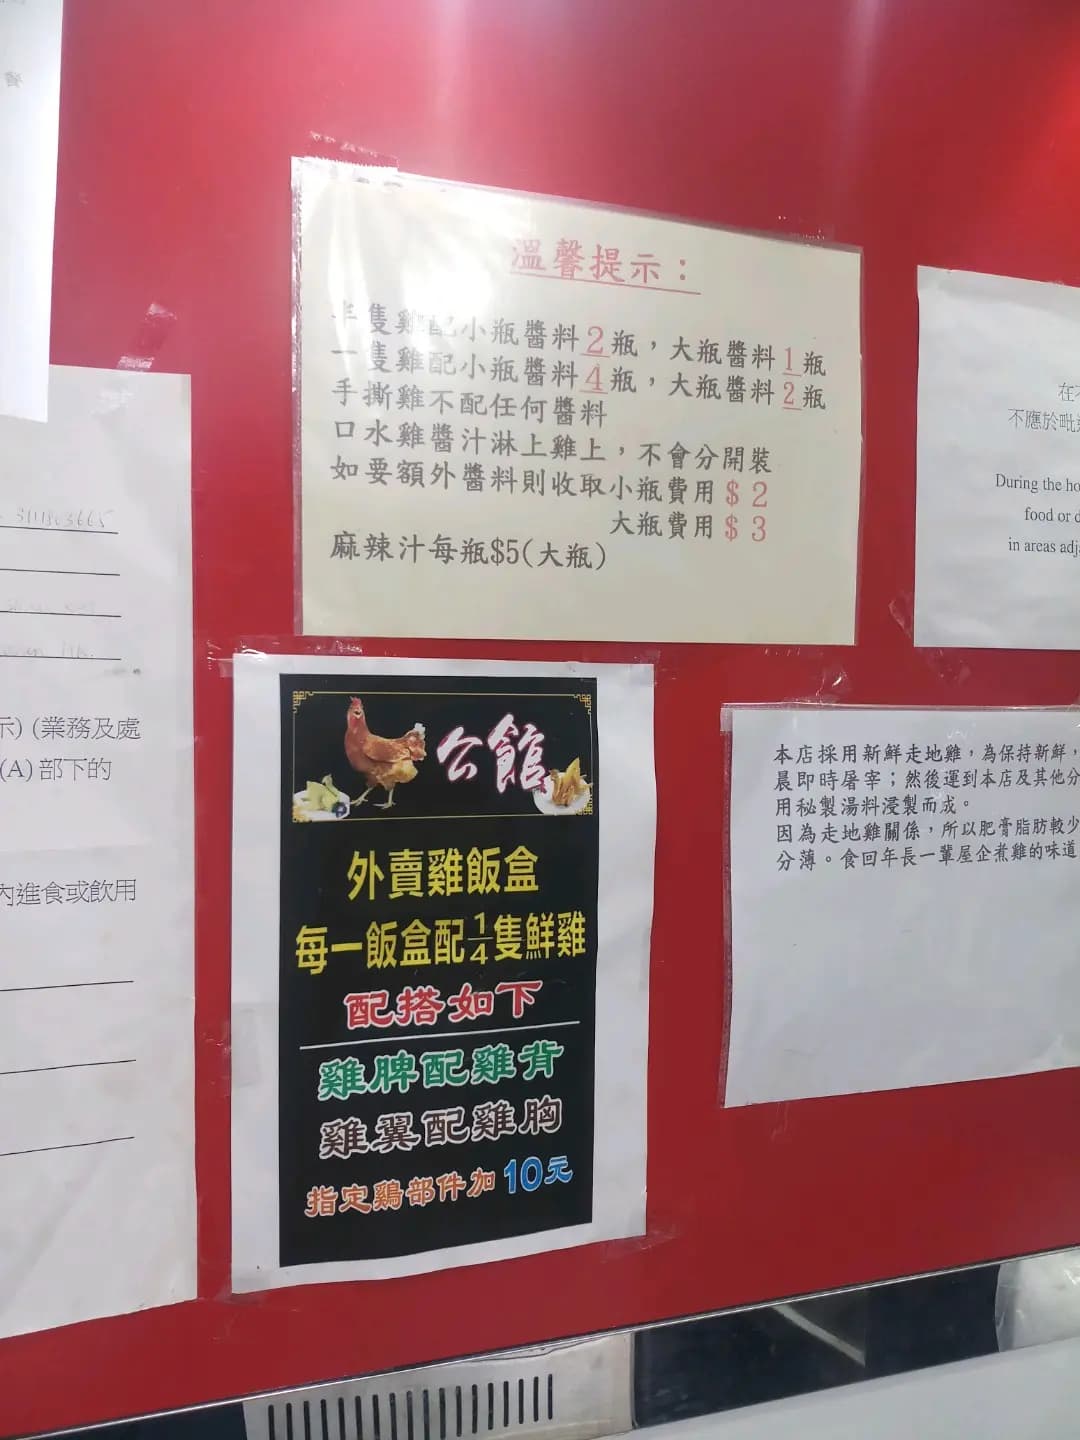 溫馨提示：
半隻雞配小瓶醬料2瓶，大瓶醬料1瓶
一隻雞配小瓶醬料4瓶，大瓶醬料2瓶
手撕雞不配任何醬料
口水雞醬汁淋上雞上，不會分開裝
如要額外醬料則收取小瓶費用$2
大瓶費用$3
麻辣汁每瓶$5(大瓶)
在不
不應於毗連
During the ho
food or d
in areas adj
示) (業務及處
(A) 部下的
內進食或飲用
公館
外賣雞飯盒
每一飯盒配1/4隻鮮雞
配搭如下
雞髀配雞背
雞翼配雞胸
指定鷄部件加10元
本店採用新鮮走地雞，為保持新鮮，
晨即時屠宰；然後運到本店及其他分
用秘製湯料浸製而成。
因為走地雞關係，所以肥膏脂肪較少
分薄。食回年長一輩屋企煮雞的味道